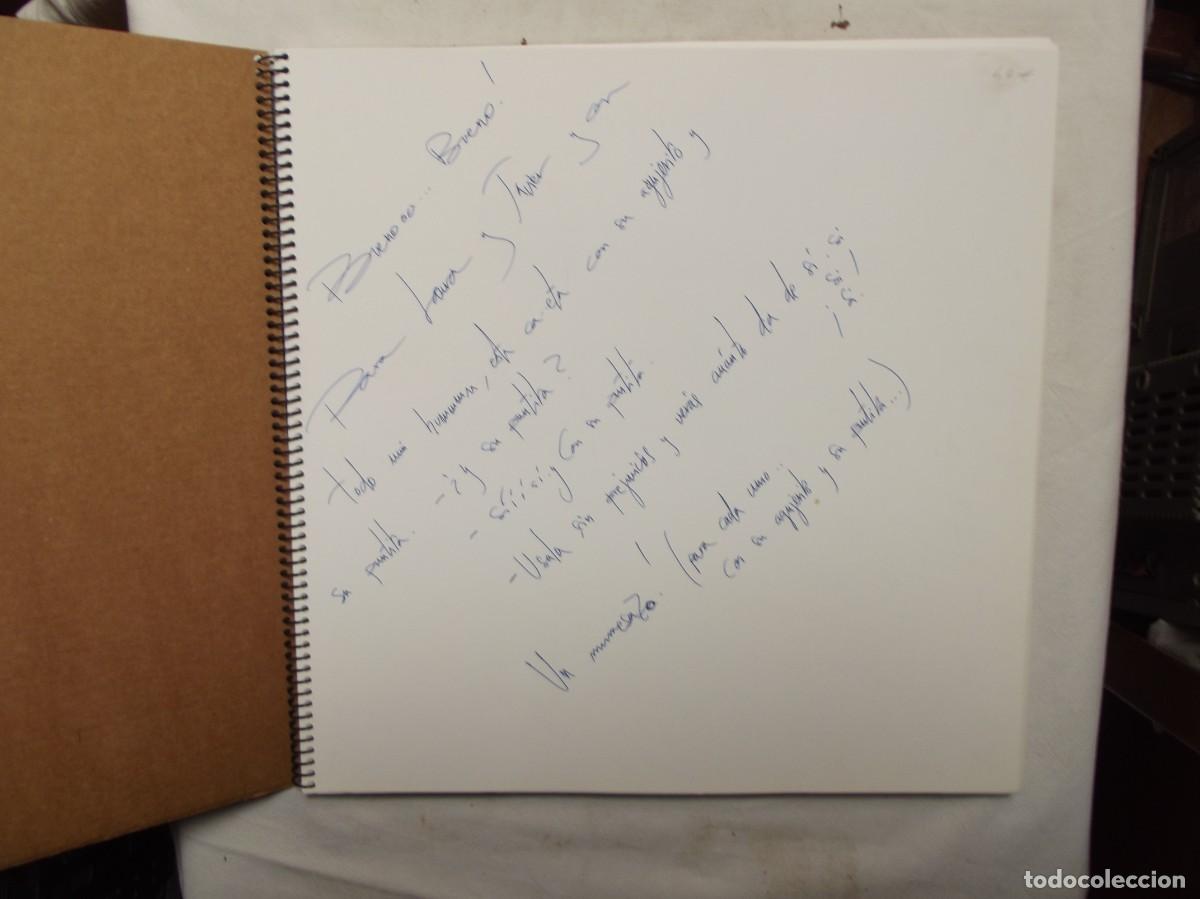 Buenooo... Bueno!
Para Laura y Javier y con
todo mi hummmm, esta ca-eta con su agujerito y
su puntita. - ¿y su puntita?
- sííísíy con su puntita.
- Usala sin prejuicios y verás cuánto da de sí. sí
¡sísí!
Un mumesazo! (para cada uno..
con su agujerito y su puntita...)
todocoleccion